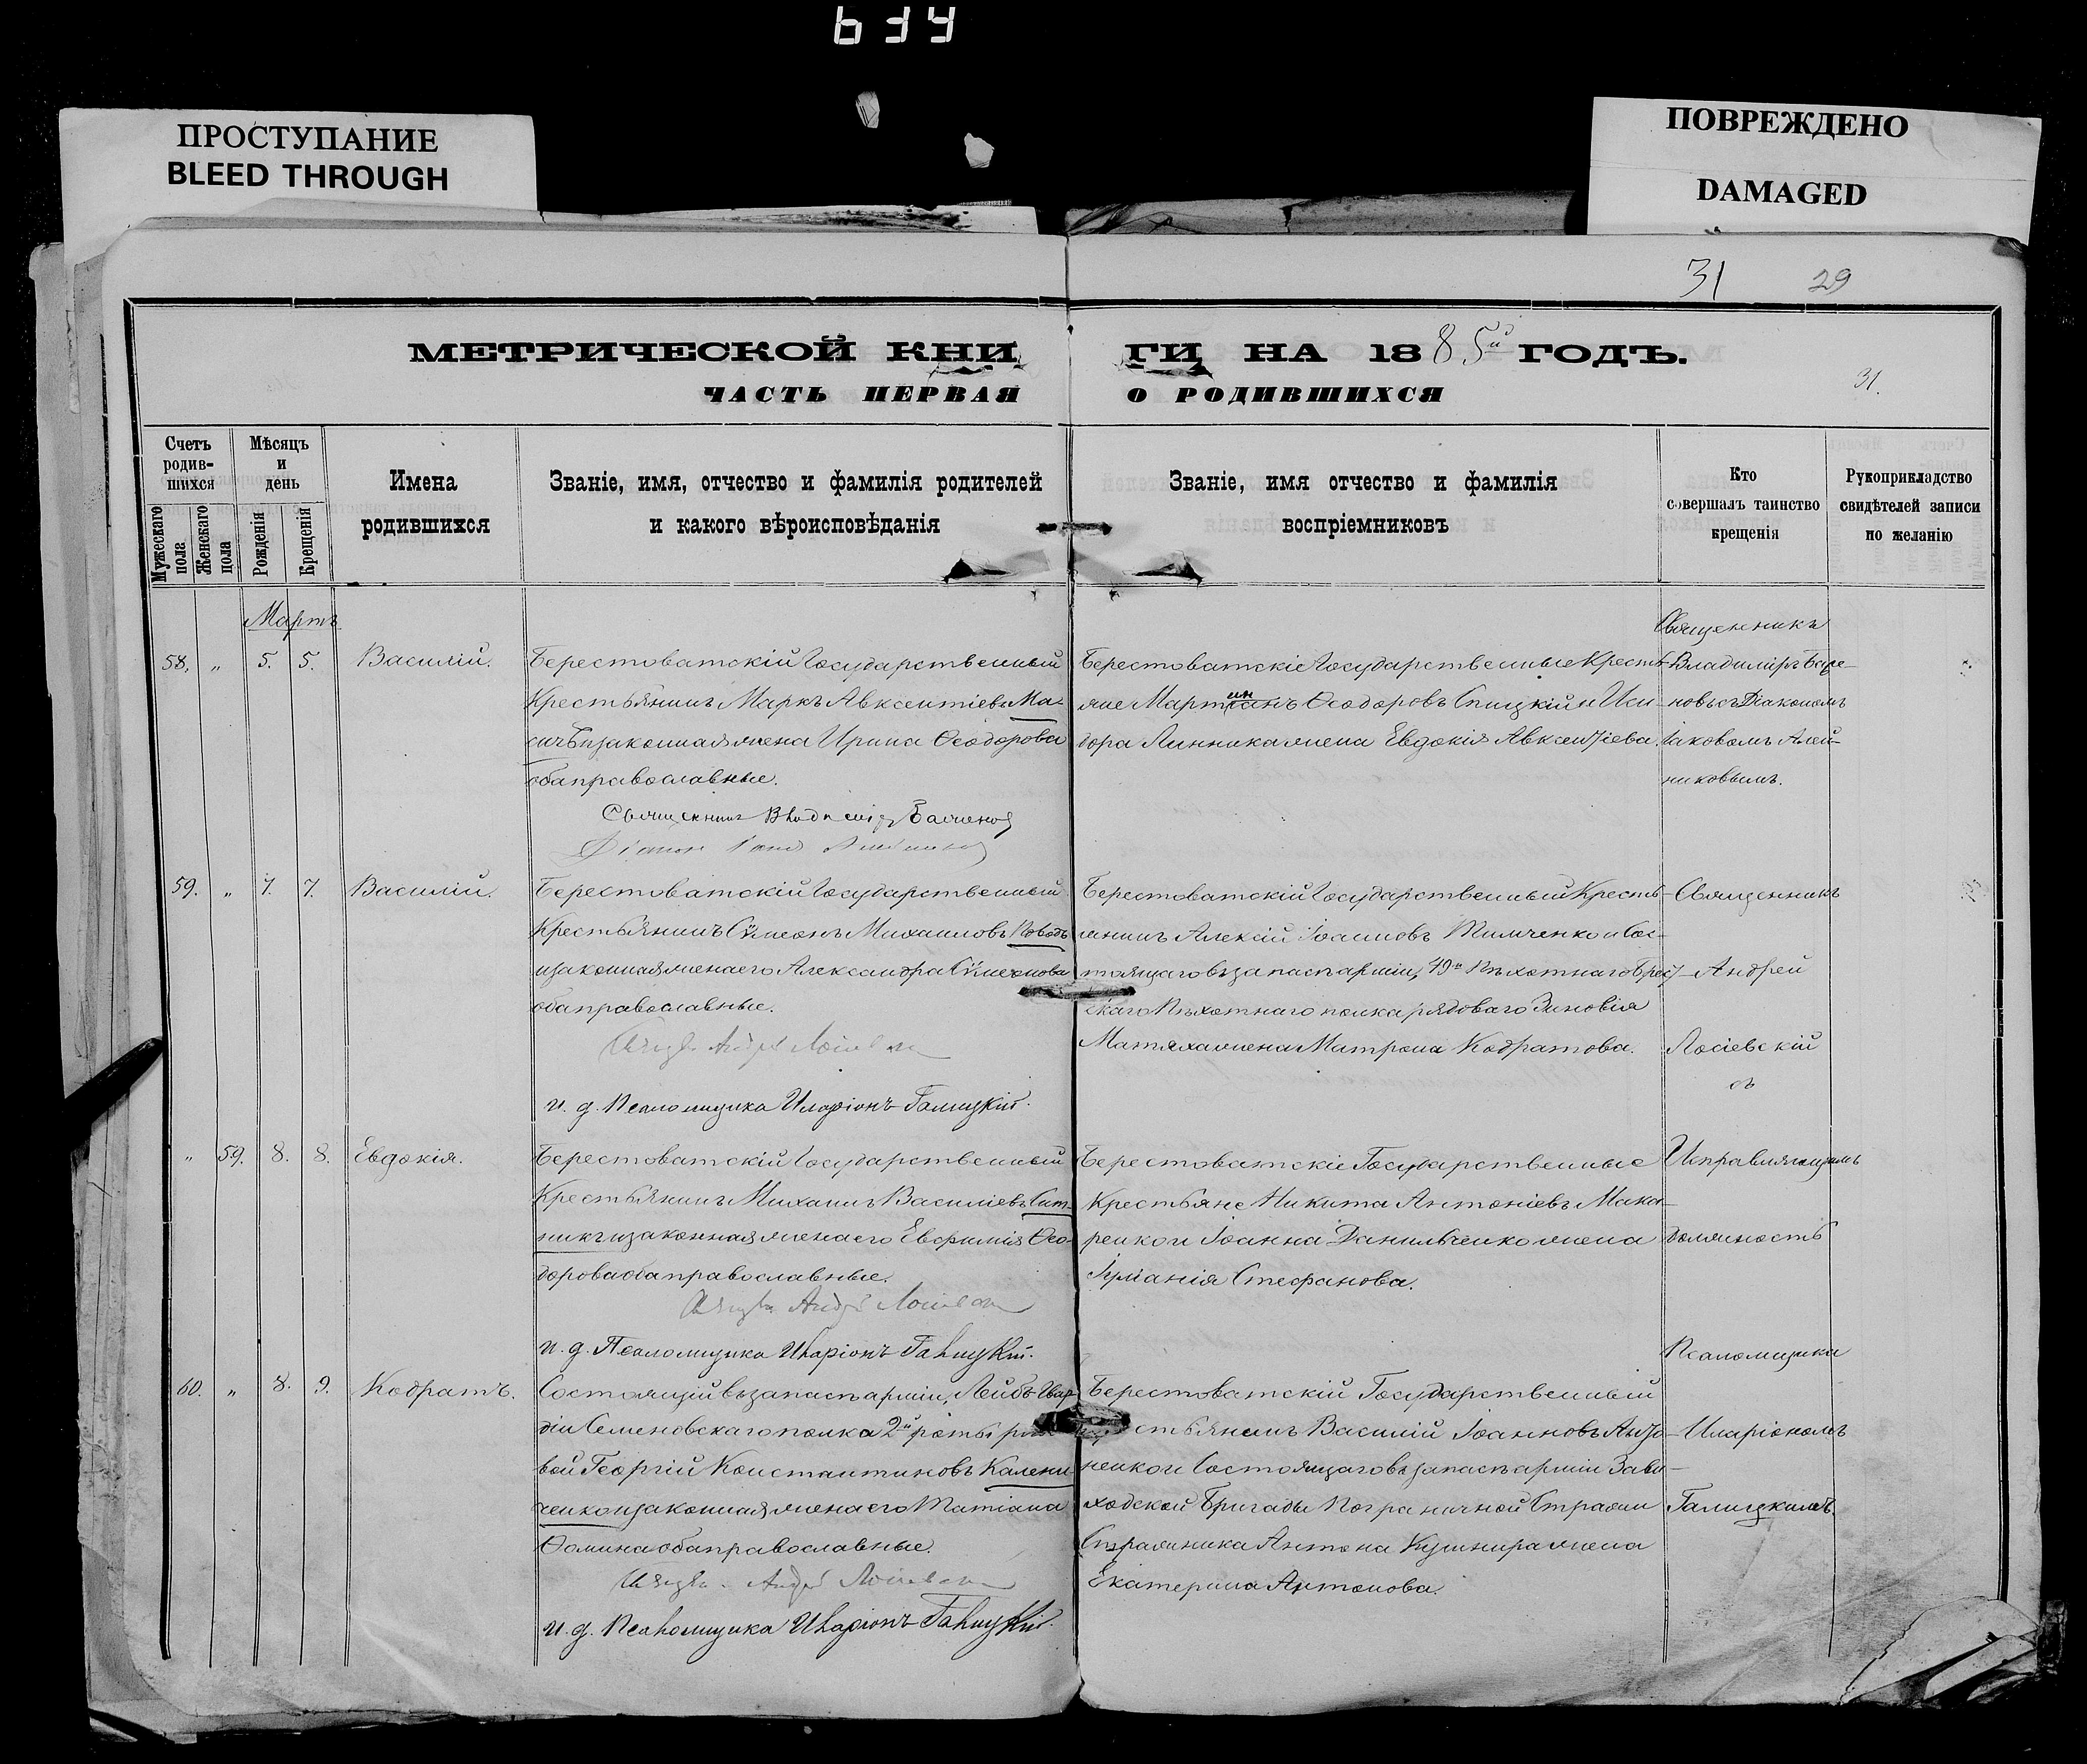 634
ПРОСТУПАНИЕ
BLEED THROUGH
ПОВРЕЖДЕНО
DAMAGED
31 29
МЕТРИЧЕСКОЙ КНИ ГИ НА 1885й ГОДЪ.
ЧАСТЬ ПЕРВАЯ О РОДИВШИХСЯ
31.
Счетъ родив-шихся
Мужескаго пола
Женскаго пола
Мѣсяцъ и день
Рожденія
Крещенія
Имена родившихся
Званіе, имя, отчество и фамилія родителей
и какого вѣроисповѣданія
Званіе, имя отчество и фамилія
воспріемниковъ
Кто
совершалъ таинство
крещенія
Рукоприкладство
свидѣтелей записи
по желанію
Мартъ
58. " 5. 5. Василій.
Берестоватскій Государственный
Крестьянинъ Маркъ Авксентіевъ
законная жена Ирина Ѳеодорова
оба православные.
Священникъ Владиміръ
Діаконъ
Берестоватскіе Государственные Кресть-
яне Мартинъ Ѳеодоровъ Спицкій и Иси-
дора Линника жена Евдокія Авксентіева.
Священникъ
Владиміръ
новъ съ Діакономъ
Іаковомъ Алей-
никовымъ.
59. " 7. 7. Василій.
Берестоватскій Государственный
Крестьянинъ Сѵмеонъ Михаиловъ
и законная жена его Александра Сѵмеонова
оба православные.
и. д. Псаломщика Иларіонъ Галицкій.
Берестоватскій Государственный Кресть-
янинъ Алексій Іоанновъ Тимченко и Сос-
тоящаго въ запасѣ арміи, 49го Пѣхотнаго Брест-
скаго Пѣхотнаго полка рядоваго Зиновія
Матяха жена Матрона Кодратова.
Священникъ
Андрей
Лосіевскій
съ
" 59. 8. 8. Евдокія.
Берестоватскій Государственный
Крестьянинъ Михаилъ Василіевъ Сит-
никъ и законная жена его Евфимія Ѳео-
дорова оба православные.
и. д. Псаломщика Иларіонъ Галицкій.
Берестоватскіе Государственные
Крестьяне Никита Антоніевъ Мака-
ренко и Іоанна Данильченко жена
Іуліанія Стефанова.
Исправляющимъ
должность
Псаломщика
60. " 8. 9. Кодратъ.
Состоящій въ запасѣ арміи, Лейбъ Гвар-
діи Семеновскаго полка 2й роты
вой Георгій Константиновъ Калени-
ченко и законная жена его Татіана
Ѳомина оба православные.
и. д. Псаломщика Иларіонъ Галицкій.
Берестоватскій Государственный
Крестьянинъ Василій Іоанновъ
ненко и Состоящаго въ запасѣ арміи Зави-
ходской Бригады Пограничной Стражи
Стражника Антона Кушнира жена
Екатерина Антонова.
Иларіономъ
Галицкимъ.